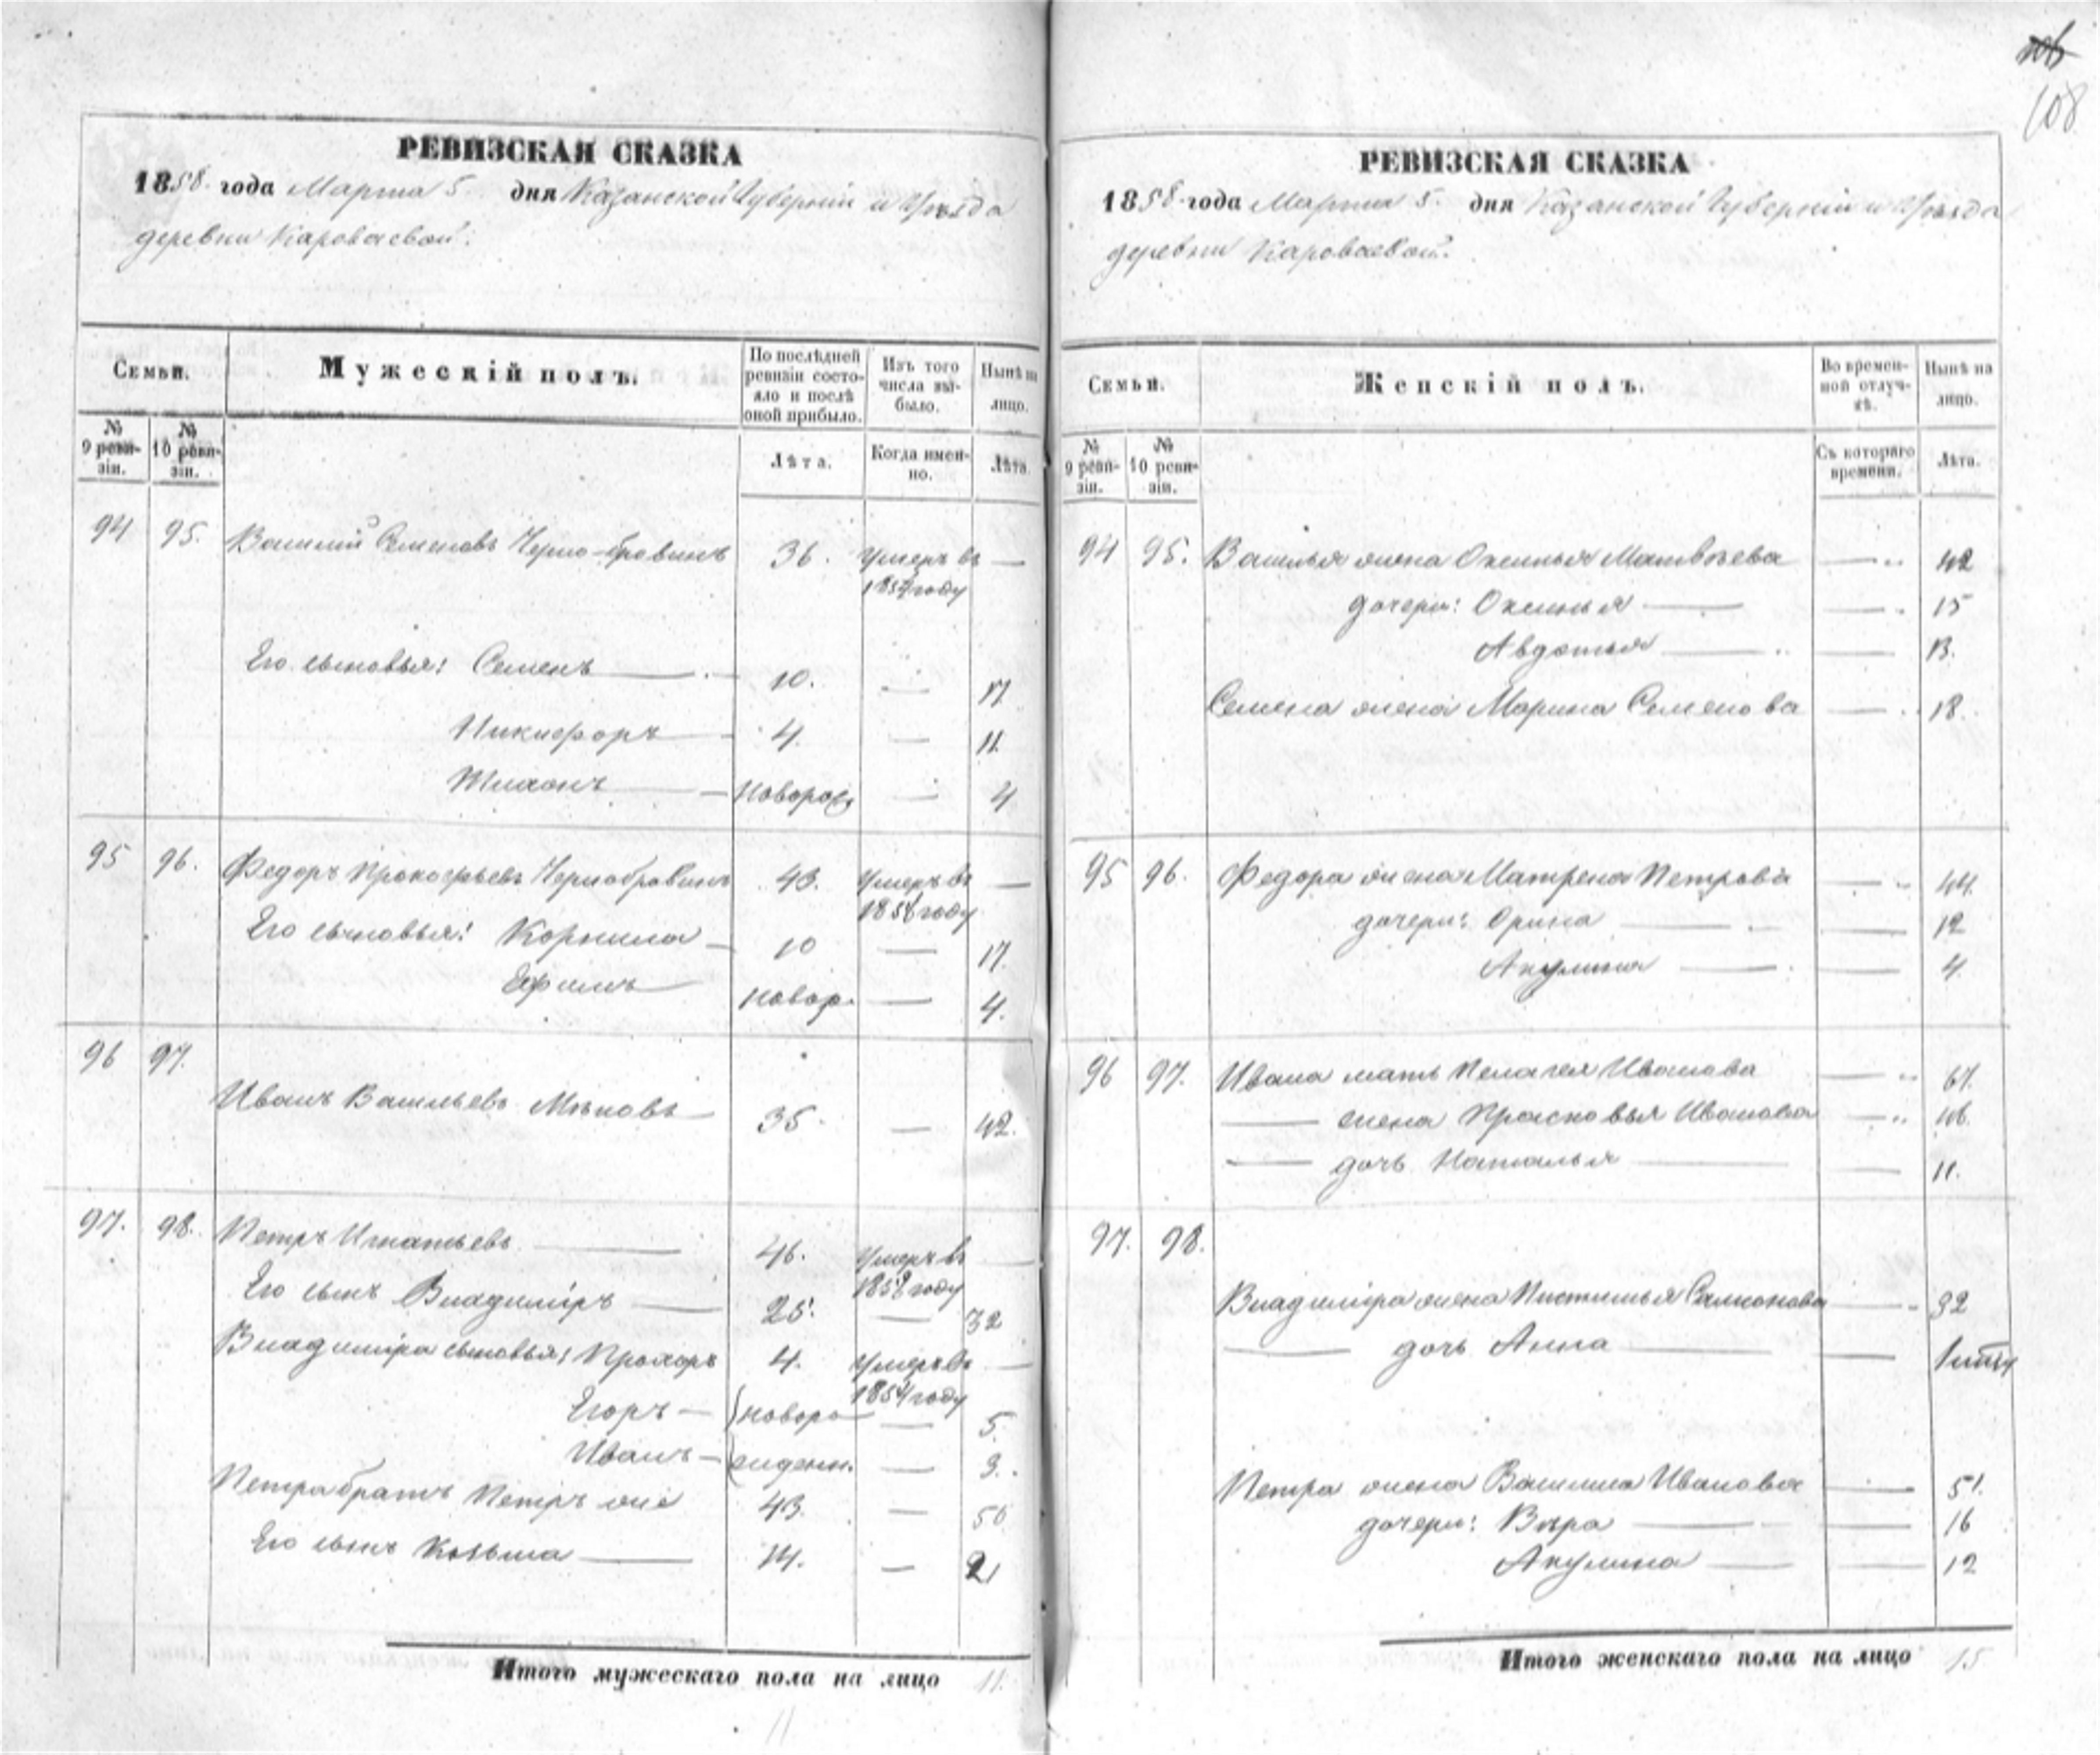 108
РЕВИЗСКАЯ СКАЗКА
1858 года Марта 5. дня Казанской Губерніи и Уѣзда
деревни Кароваевой.
Семьи.
Мужескій полъ.
По послѣдней ревизіи состояло и послѣ оной прибыло.
Изъ того числа выбыло.
Нынѣ на лицо.
№ 9 ревизіи.
№ 10 ревизіи.
Лѣта.
Когда именно.
Лѣта.
94 95. Василій Семеновъ Черно-бровинъ 36. Умеръ въ —
1854 году
Его сыновья: Семенъ — 10. — 17
Никифоръ — 4. — 11.
Тихонъ — новорож — 4
95 96. Федоръ Прокофьевъ Чернобровинъ 43. Умеръ въ —
году
Его сыновья: Корнила — 10 — 17.
Ефимъ новор. — 4.
96 97.
Иванъ Васильевъ — 35. — 42.
97. 98. Петръ Игнатьевъ — 46. Умеръ въ —
году
Его сынъ Владиміръ — 25. — 32
Владиміра сыновья: Прохоръ 4. Умеръ въ —
1854 году
Егоръ — новоро — 5.
Иванъ — жденн. — 3.
Петра братъ Петръ же 43. — 50
Его сынъ Козьма — 14. — 21
Итого мужескаго пола на лицо 11.
11
РЕВИЗСКАЯ СКАЗКА
1858 года Марта 5. дня Казанской Губерніи и Уѣзда
деревни Кароваевой.
Семьи.
Женскій полъ.
Во временной отлучкѣ.
Нынѣ на лицо.
№ 9 ревизіи.
№ 10 ревизіи.
Съ котораго времени.
Лѣта.
94 95. Василья жена Оксинья Матвѣева — 42
дочери: Оксинья — — 15
Авдотья — — 13.
Семена жена Марина Семенова — 18.
95 96. Федора жена Матрена Петрова — 44.
дочери: Орина — — 12
Акулина — — 4.
96 97. Ивана мать Пелагея Иванова — 67.
— жена Прасковья Иванова — 46.
— дочь Наталья — — 11.
97. 98.
Владиміра жена — 32
— дочь Анна — —
Петра жена Василиса Иванова — 51.
дочери: Вѣра — — 16
Акулина — — 12
Итого женскаго пола на лицо 15